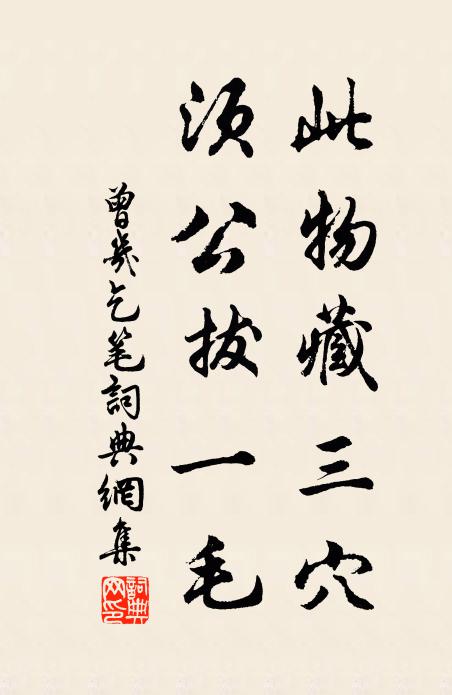 此物藏三穴
須公拔一毛
曾幾乞笔詞典網集
詞典網印